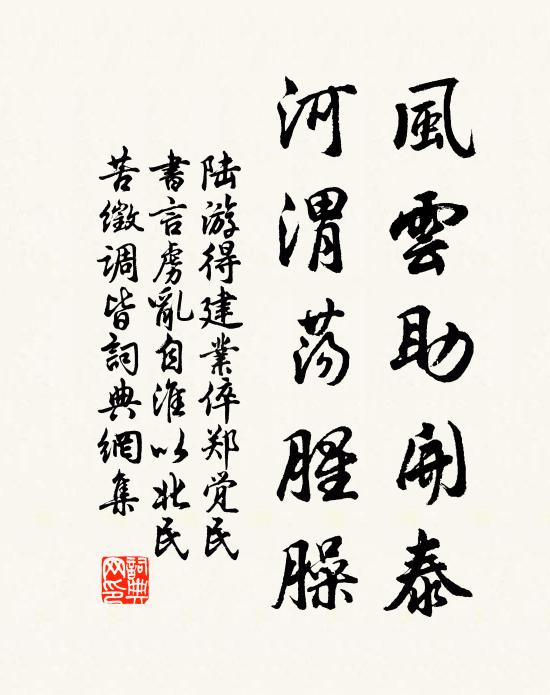 風雲助開泰
河渭蕩腥臊
陸游得建業倅郑觉民
書言虜亂自淮以北民
苦徵調皆詞典網集
詞典
网印